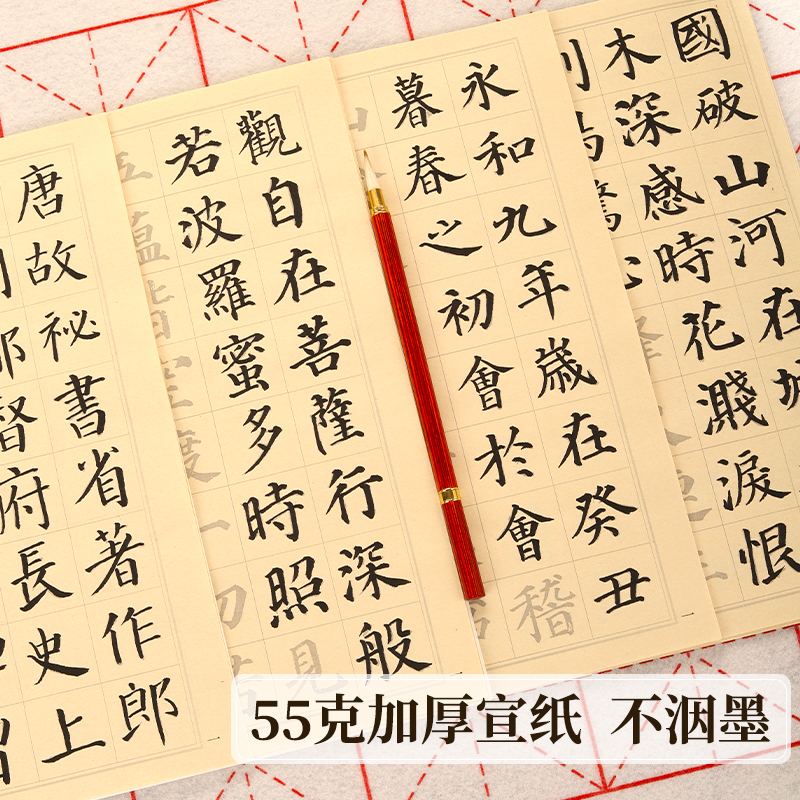 國破山河在城
木深感時花濺淚恨
永和九年歲在癸丑
暮春之初會於會稽
觀自在菩薩行深般
若波羅蜜多時照見
蘊皆空度一切
唐故祕書省著作郎
督府長史上
55克加厚宣纸 不洇墨